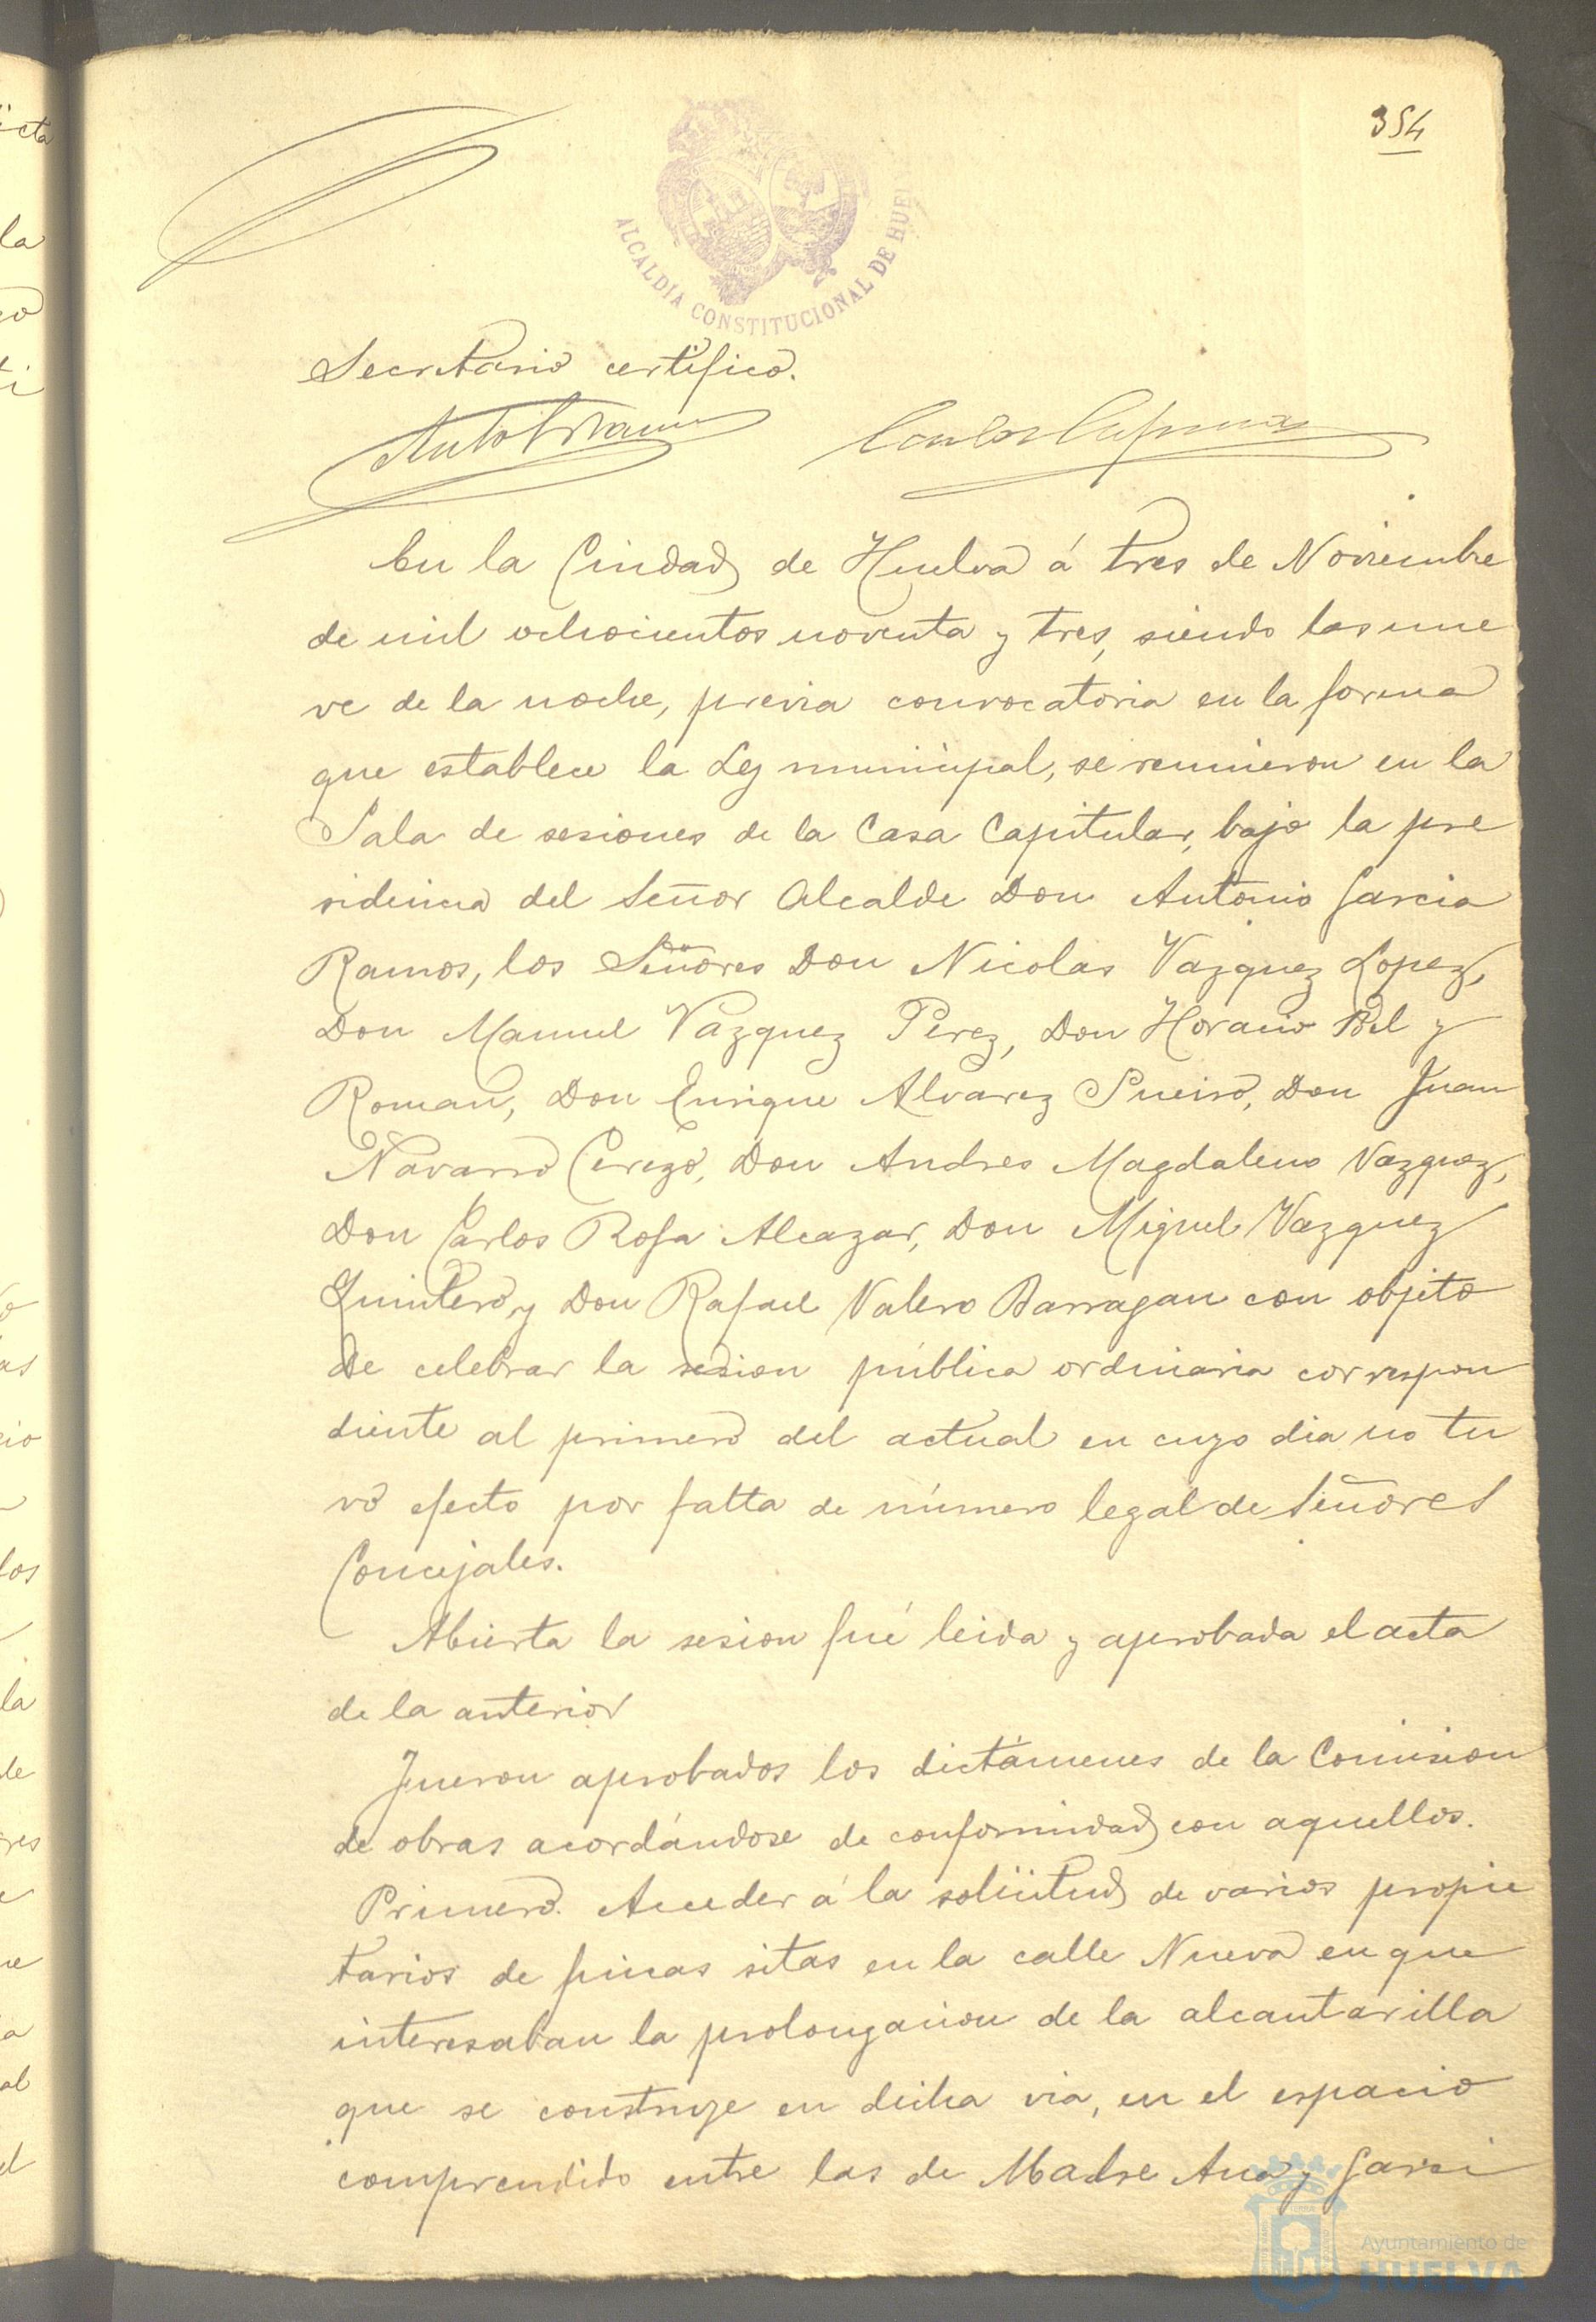 354
ALCALDÍA CONSTITUCIONAL DE HUEL
Secretario certifico.
En la Ciudad de Huelva á tres de Noviembre
de mil ochocientos noventa y tres, siendo las nue
ve de la noche, previa convocatoria en la forma
que establece la Ley municipal, se reunieron en la
Sala de sesiones de la Casa Capitular, bajo la pre
sidencia del Señor Alcalde Don Antonio Garcia
Ramos, los Señores Don Nicolas Vazquez Lopez,
Don Manuel Vazquez Perez, Don Horacio Bel y
Roman, Don Enrique Alvarez Sueiro, Don Juan
Navarro Cerezo, Don Andres Magdaleno Vazquez,
Don Carlos Rofa Alcazar, Don Miguel Vazquez
Quintero, y Don Rafael Valero Barragan con objeto
de celebrar la sesion pública ordinaria correspon
diente al primero del actual en cuyo dia no tu
vo efecto por falta de número legal de Señores
Concejales.
Abierta la sesion fué leida y aprobada el acta
de la anterior
Fueron aprobados los dictámenes de la Comision
de obras acordándose de conformidad con aquellos.
Primero. Acceder á la solicitud de varios propie
tarios de fincas sitas en la calle Nueva en que
interesaban la prolongacion de la alcantarilla
que se construye en dicha via, en el espacio
comprendido entre las de Madre Ana y Garci
Ayuntamiento de
HUELVA